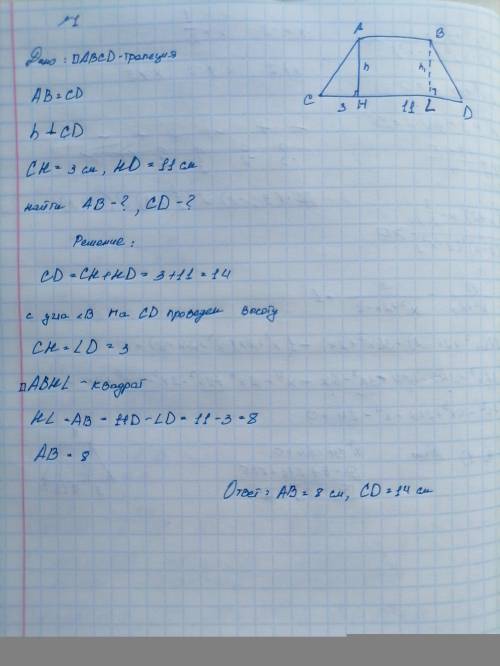 №1
Дано: □ABCD - трапеция
AB = CD
h ⊥ CD
CH = 3 см, HD = 11 см
найти AB - ?, CD - ?
Решение:
CD = CH + HD = 3 + 11 = 14
с угла <B на CD проведем высоту
CH = LD = 3
□ABHL - квадрат
HL = AB = HD - LD = 11 - 3 = 8
AB = 8
Ответ: AB = 8 см, CD = 14 см
A B
h h
C 3 H 11 L D